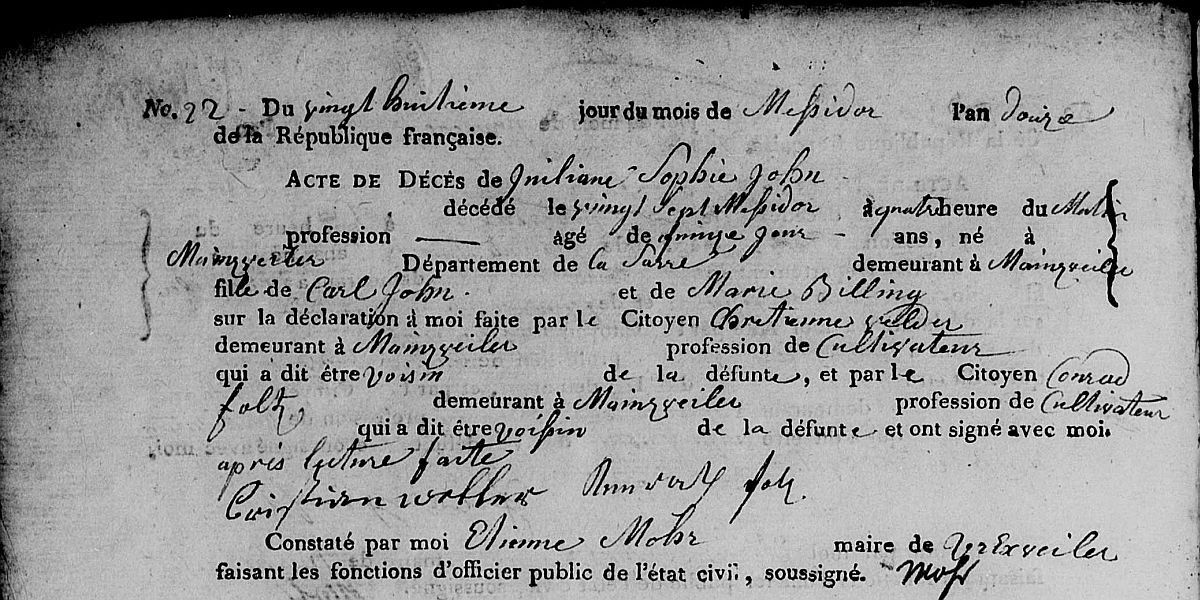 No. 22 - Du vingt huitième jour du mois de Messidor l'an douze
de la République française.
ACTE DE DÉCÈS de Juiliane Sophie John
décédé le vingt Sept Messidor à quatr heure du Matin
profession — agé de quinze jour - ans, né à
Mainzweiler Département de la Sarre demeurant à Mainzweiler
fille de Carl John. et de Marie Billing
sur la déclaration à moi faite par le Citoyen Chretienne
demeurant à Mainzweiler profession de Cultivateur
qui a dit être voisin de la défunte, et par le Citoyen Conrad
foltz demeurant à Mainzweiler profession de Cultivateur
qui a dit être voissin de la défunte et ont signé avec moi.
après lecture faite
Cristian foltz.
Constaté par moi Etienne Mohr maire de Urexweiler
faisant les fonctions d'officier public de l'état civil, soussigné. Mohr